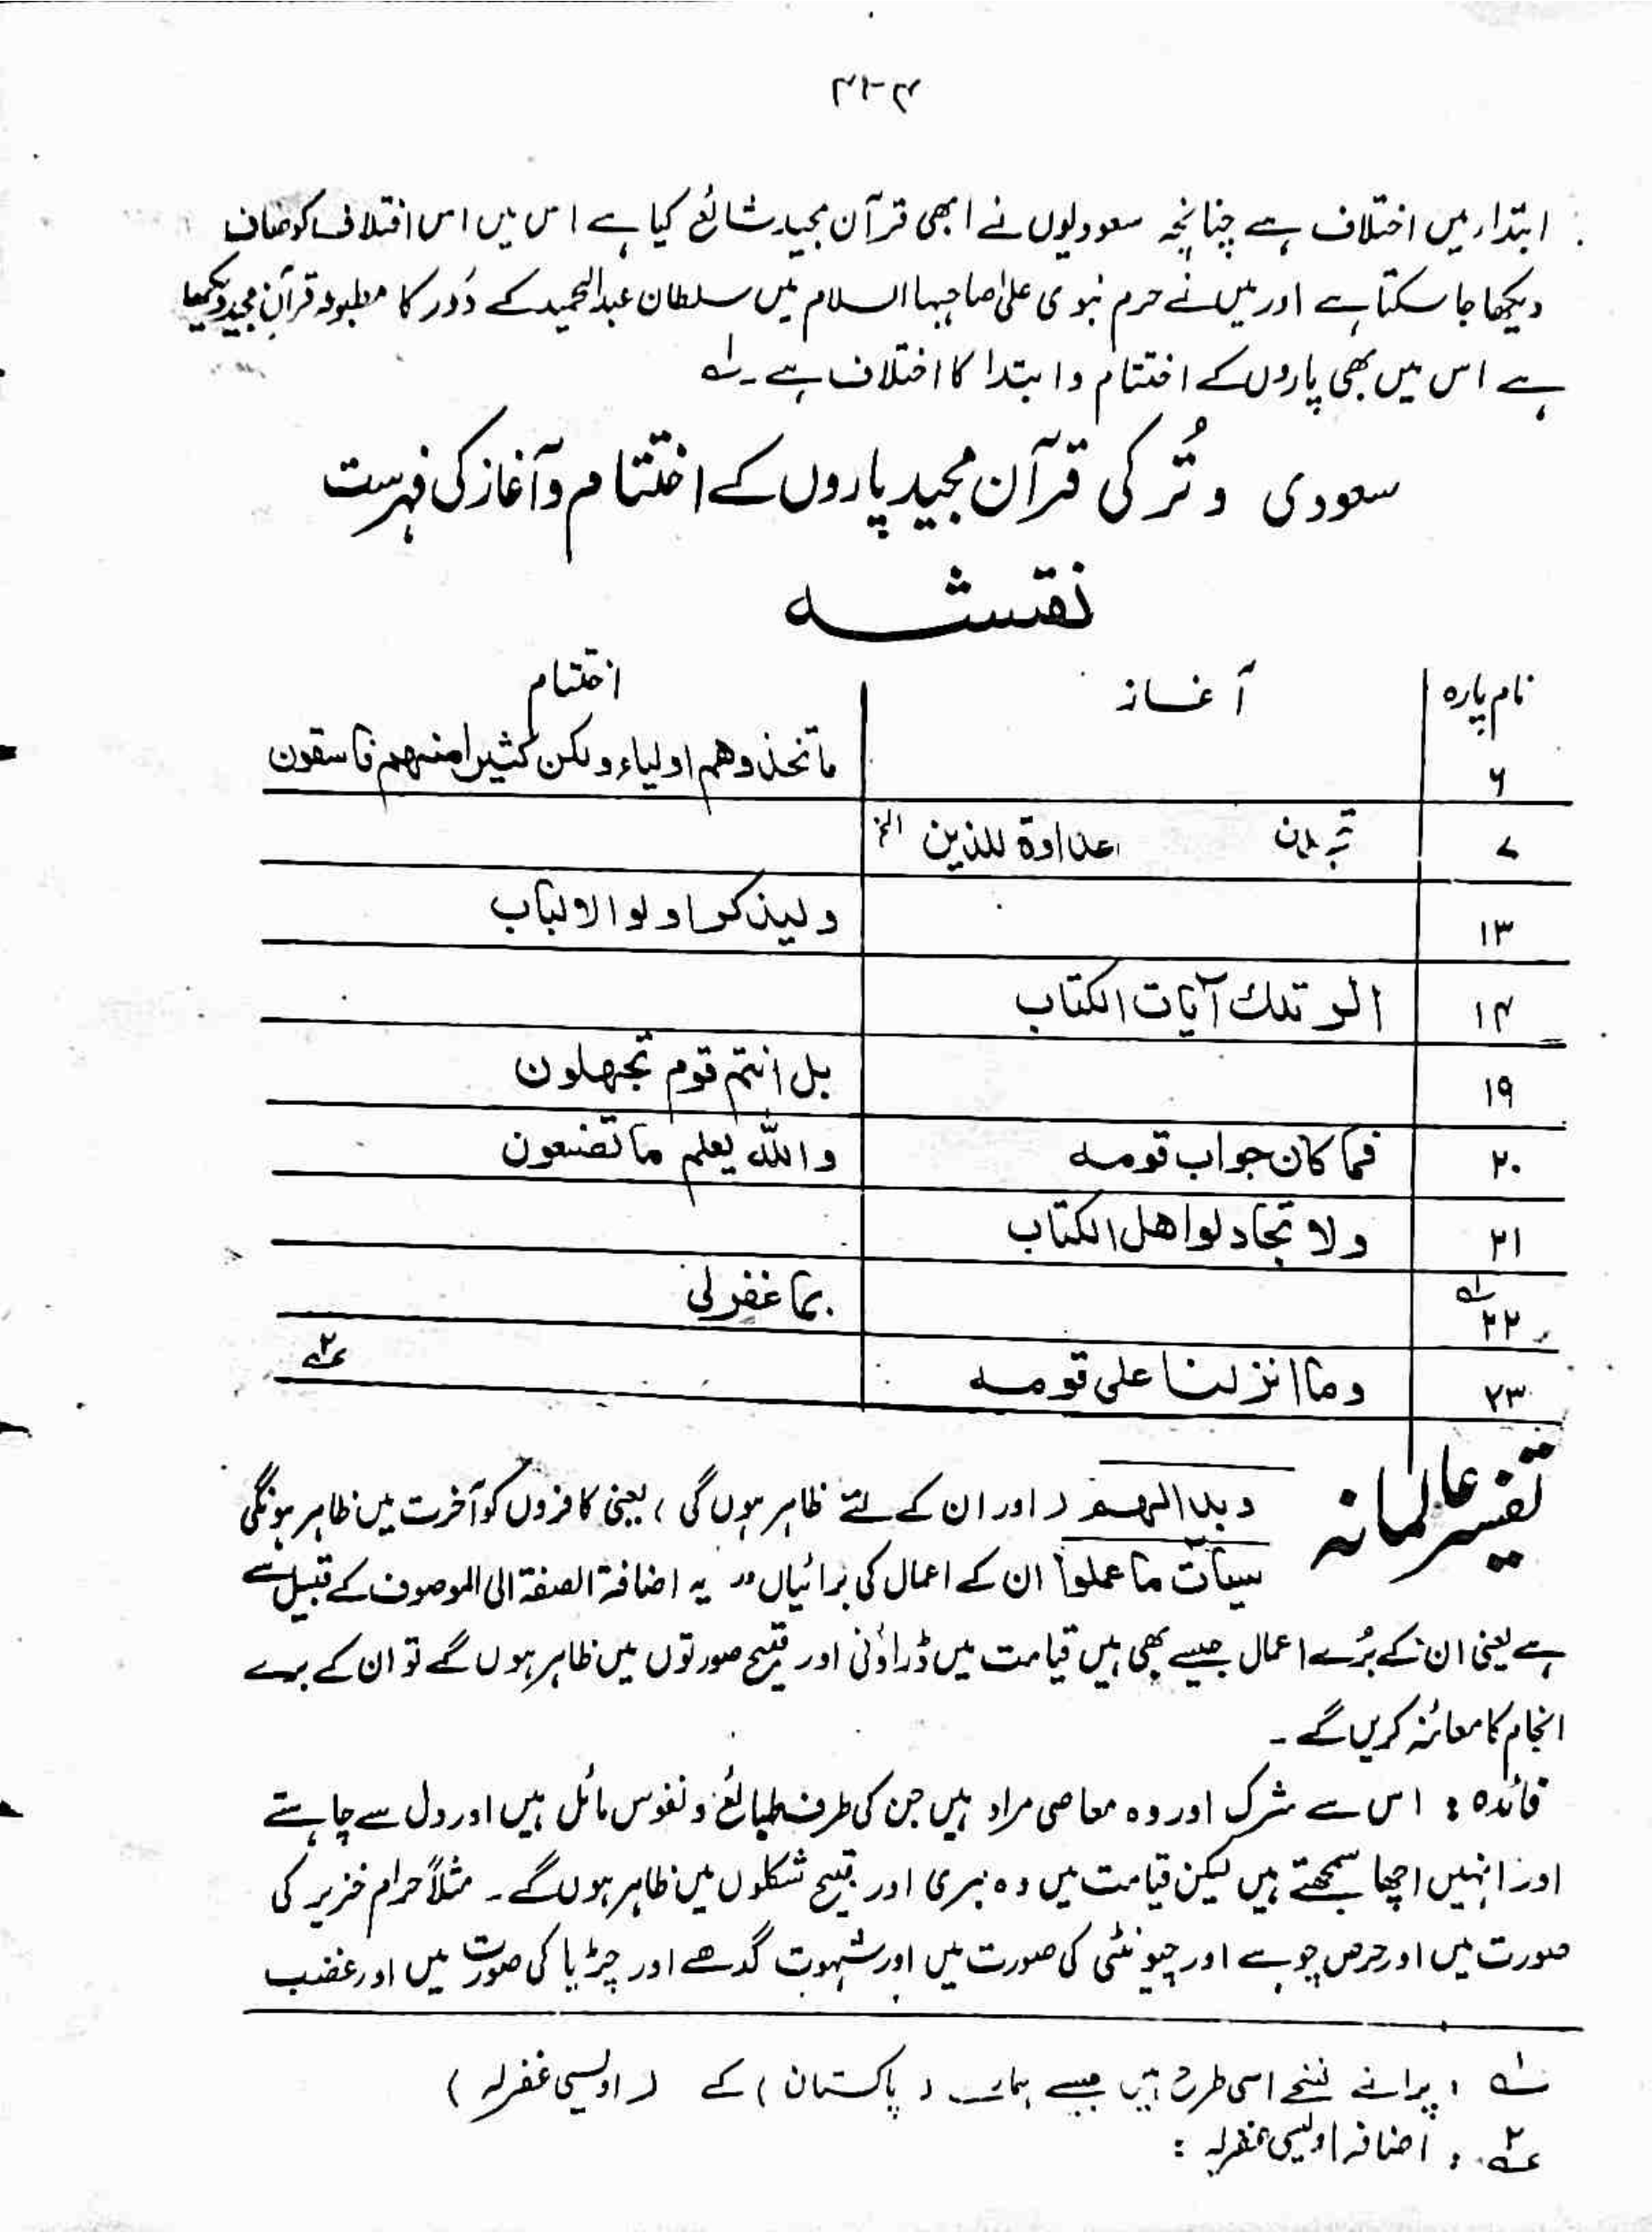 ابتداء میں اختلاف ہے چنانچہ سعودیوں نے ابھی قرآن مجید شائع کیا ہے اس میں اس اختلاف کو صاف
دیکھا جا سکتا ہے اور میں نے حرم نبوی علیٰ صاحبہا السلام میں سلطان عبدالحمید کے دَور کا مطبوعہ قرآن مجید دیکھا
ہے اس میں بھی پاروں کے اختتام و ابتدا کا اختلاف ہے۔ لہ
سعودی و تُرکی قرآن مجید پاروں کے اختتام و آغاز کی فہرست
نقشہ
نام پارہ آغاز اختتام
۶ ما تخذوھم اولیاء ولکن کثیرا منھم فاسقون
۷ عداوۃ للذین الخ
۱۳ ولیذکر اولوا الالباب
۱۴ الر تلک آیات الکتاب
۱۹ بل انتم قوم تجھلون
۲۰ فما کان جواب قومہ واللہ یعلم ما تصنعون
۲۱ ولا تجادلوا اھل الکتاب
۲۲ لہ بما غفر لی
۲۳ وما انزلنا علی قومہ ۲ے
تفسیر عالمانہ
وبدا لھم ( اور ان کے لئے ظاہر ہوں گی ) یعنی کافروں کو آخرت میں ظاہر ہونگی
سیاٰت ما عملوا ان کے اعمال کی برائیاں " یہ اضافۃ الصفۃ الی الموصوف کے قبیل سے
ہے یعنی ان کے بُرے اعمال جیسے بھی ہیں قیامت میں ڈراؤنی اور قبیح صورتوں میں ظاہر ہوں گے تو ان کے برے
انجام کا معائنہ کریں گے ۔
فائدہ : اس سے شرک اور وہ معاصی مراد ہیں جن کی طرف طبائع و نفوس مائل ہیں اور دل سے چاہتے
اور انہیں اچھا سمجھتے ہیں لیکن قیامت میں وہ بری اور قبیح شکلوں میں ظاہر ہوں گے ۔ مثلاً حرام خنزیر کی
صورت میں اور حرص چوہے اور چیونٹی کی صورت میں اور شہوت گدھے اور چڑیا کی صورت میں اور غضب
لہ : پرانے نسخے اسی طرح ہیں جیسے ہمارے ( پاکستان ) کے ( اویسی غفرلہ )
۲ے : اضافہ اویسی غفرلہ :